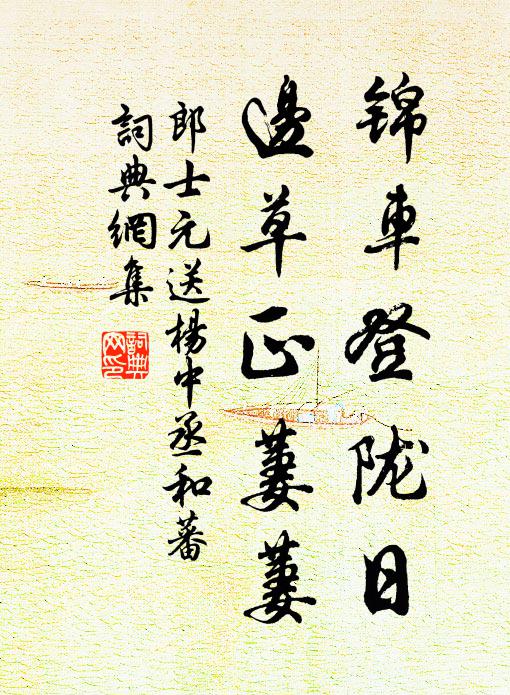 锦車登陇日
邊草正萋萋
郎士元送楊中丞和蕃
詞典網集
詞典网印